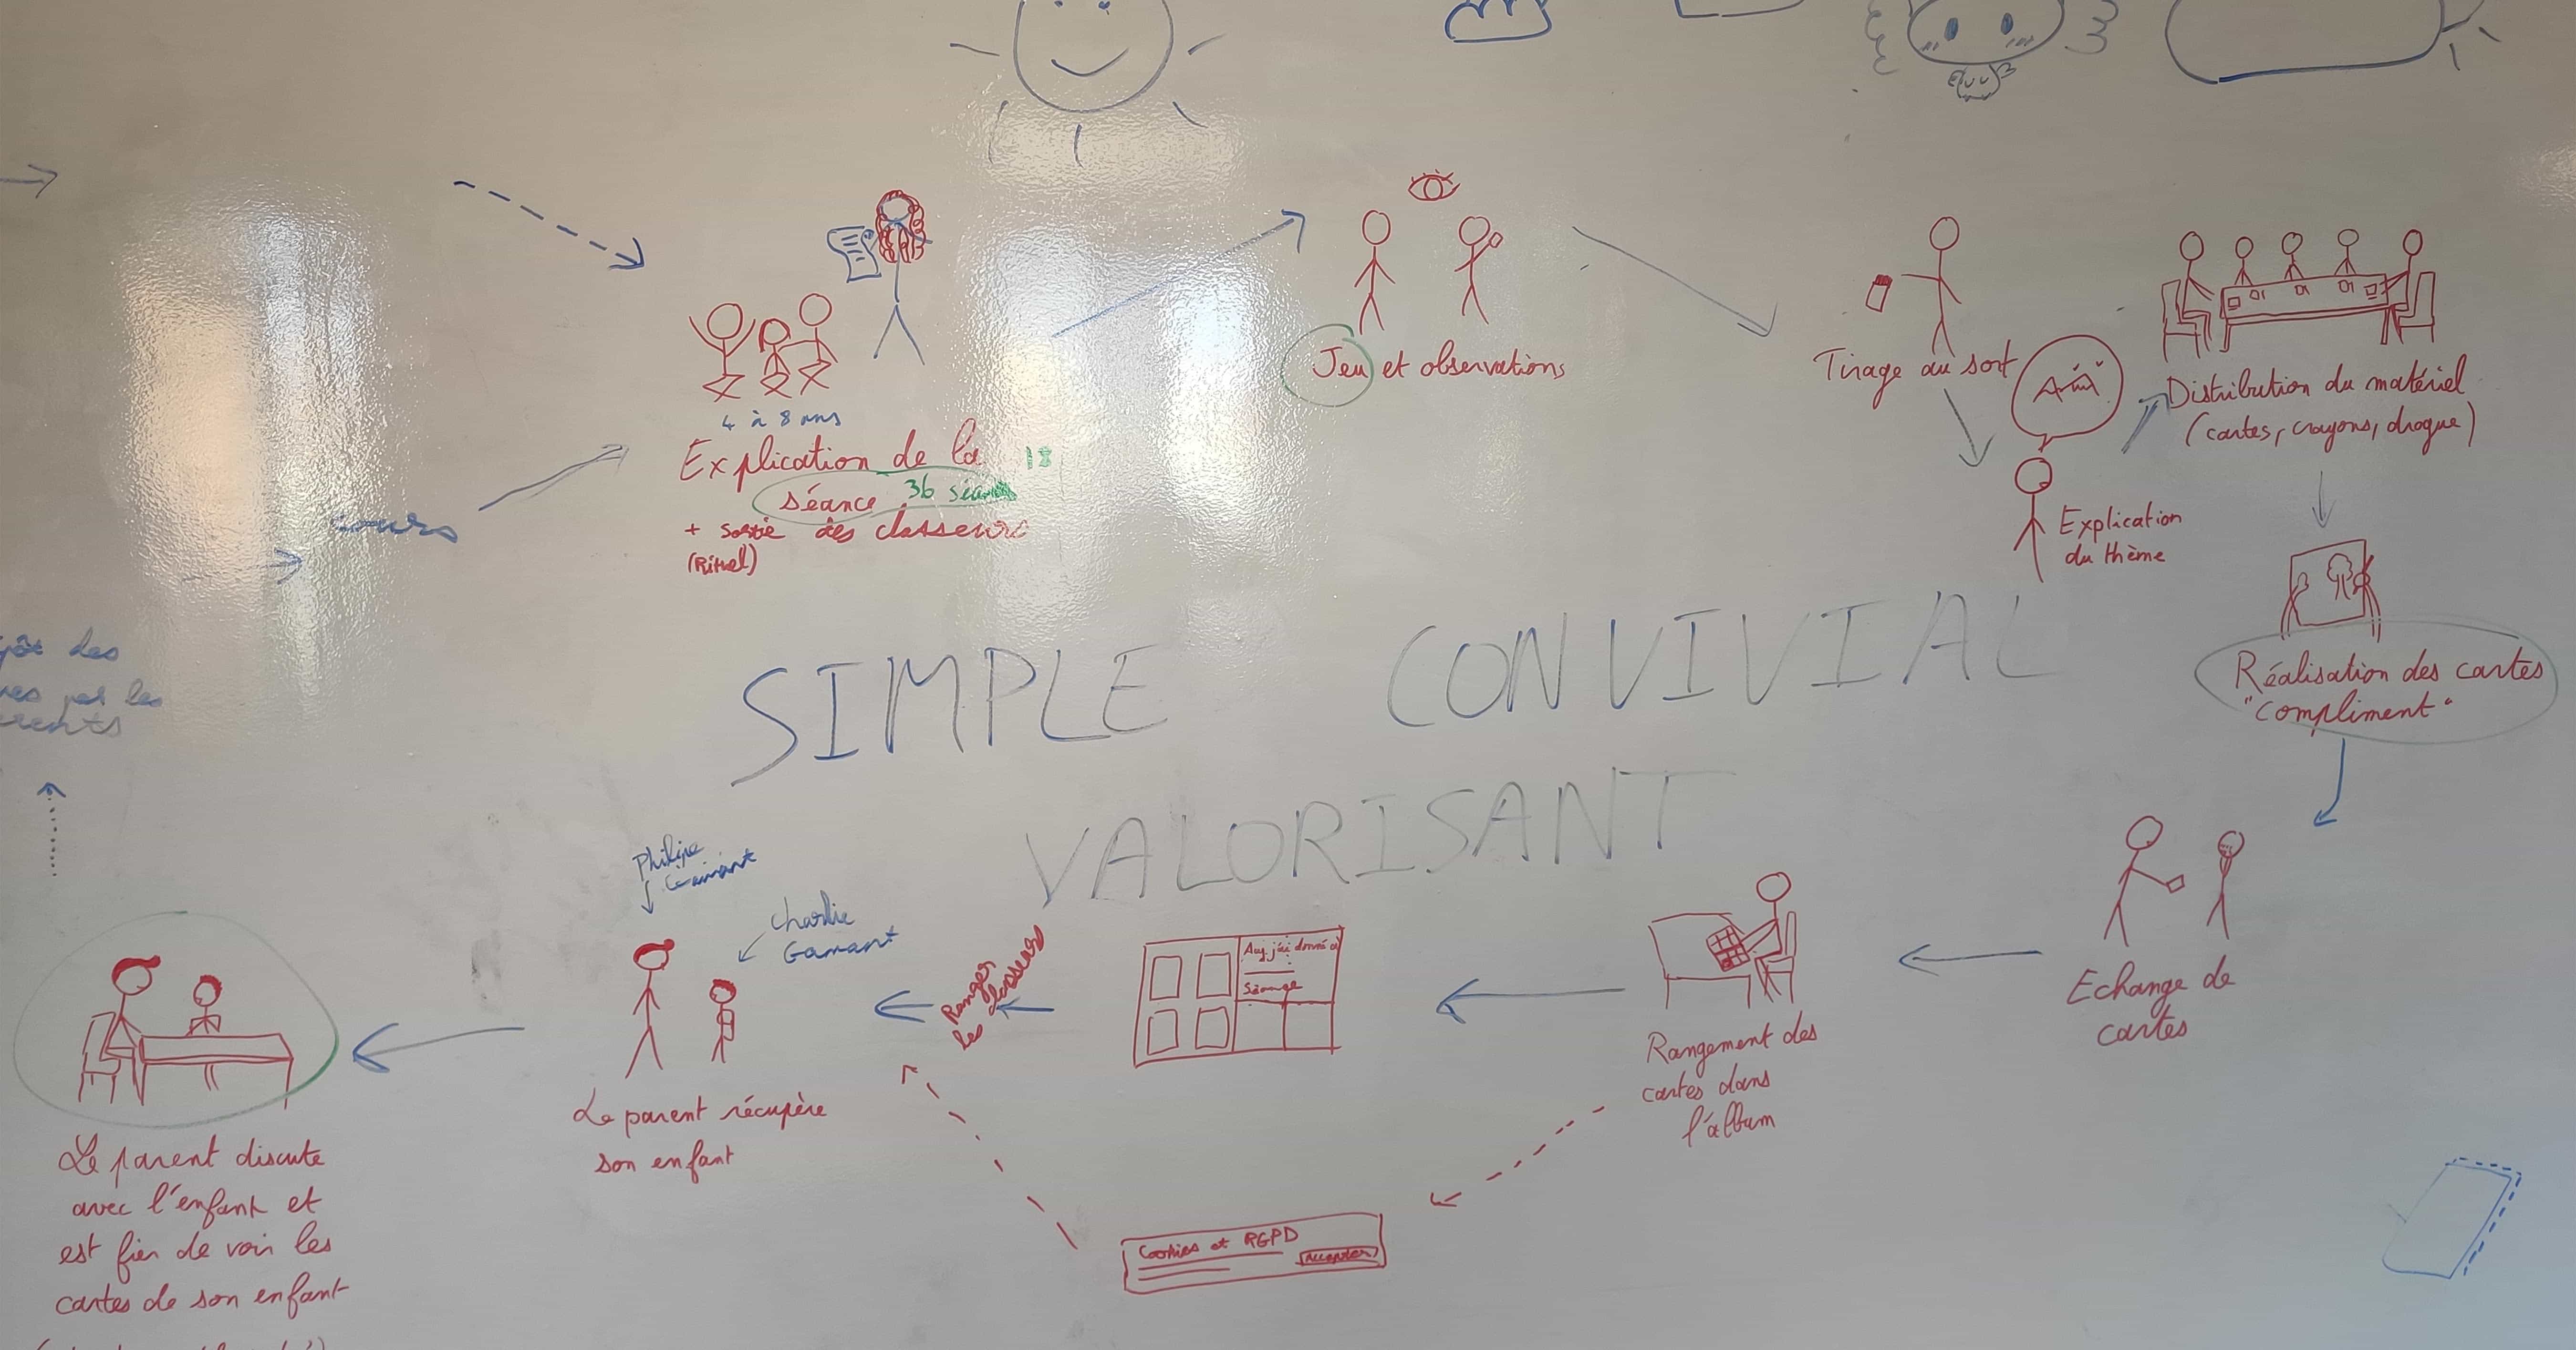 4 à 8 ans
Explication de la
18
séance
36
+ sortie des classeurs
(Rituel)
cours
Jeu et observations
Tirage au sort
Ami
Explication
du thème
Distribution du matériel
(cartes, crayons, drogue)
Réalisation des cartes
"compliment"
SIMPLE CONVIVIAL
VALORISANT
Echange de
cartes
Rangement des
cartes dans
l'album
Auj, j'ai donné à
Ranger
les classeurs
Cookies et RGPD
Accepter
Philipe
Charlie
Gamant
Le parent récupère
son enfant
Le parent discute
avec l'enfant et
est fier de voir les
cartes de son enfant
des
par les